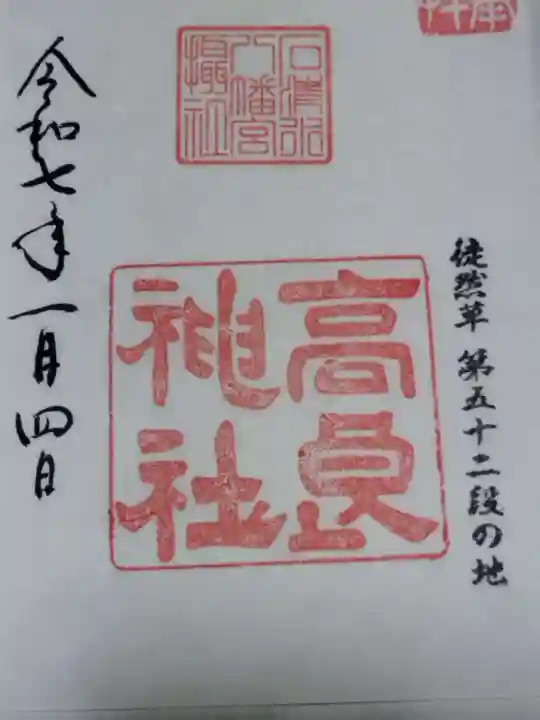 徒然草 第五十二段の地
石清水
八幡宮
攝社
高良
神社
令和七年一月四日